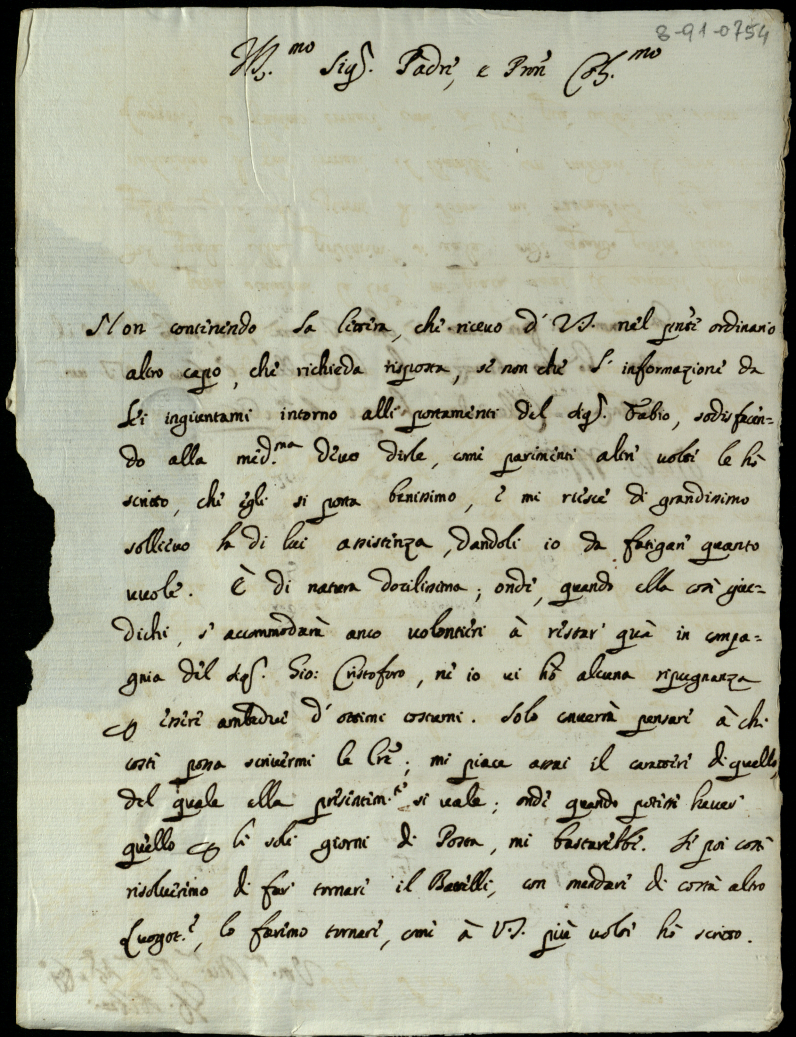 8-91-0754
Ill.mo Sig.r Padre, e Pron Col.mo
Non contenendo la lettera, che ricevo d' V.S. nel pnte ordinario
altro capo, che richieda risposta, se non che l' informazione da
Lei ingiuntami intorno alli portamenti del Sig.r Fabio, sodisfacen=
do alla med.ma devo dirle, come parimenti altre volte le hò
scritto, che egli si porta benissimo, e mi riesce di grandissimo
sollievo la di lui assistenza, dandoli io da fatigare quanto
vuole. È di natura docilissima; onde, quando ella così giu=
dichi, s' accommodarà anco volontieri à restar quà in compa=
gnia del Sig.r Gio: Cristoforo, ne io vi hò alcuna repugnanza
p essere ambedue d' ottimi costumi. Solo converrà pensare à chi
costì possa scrivermi le Lre; mi piace assai il carattere di quello,
del quale ella presentem.te si vale; onde quando potessi havere
quello p li soli giorni di Posta, mi bastarebbe. Se poi così
risolvessimo di far tornare il Batelli, con mandare di costà altro
Luogot.e, lo faremo tornare, come à V.S. più volte hò scritto.